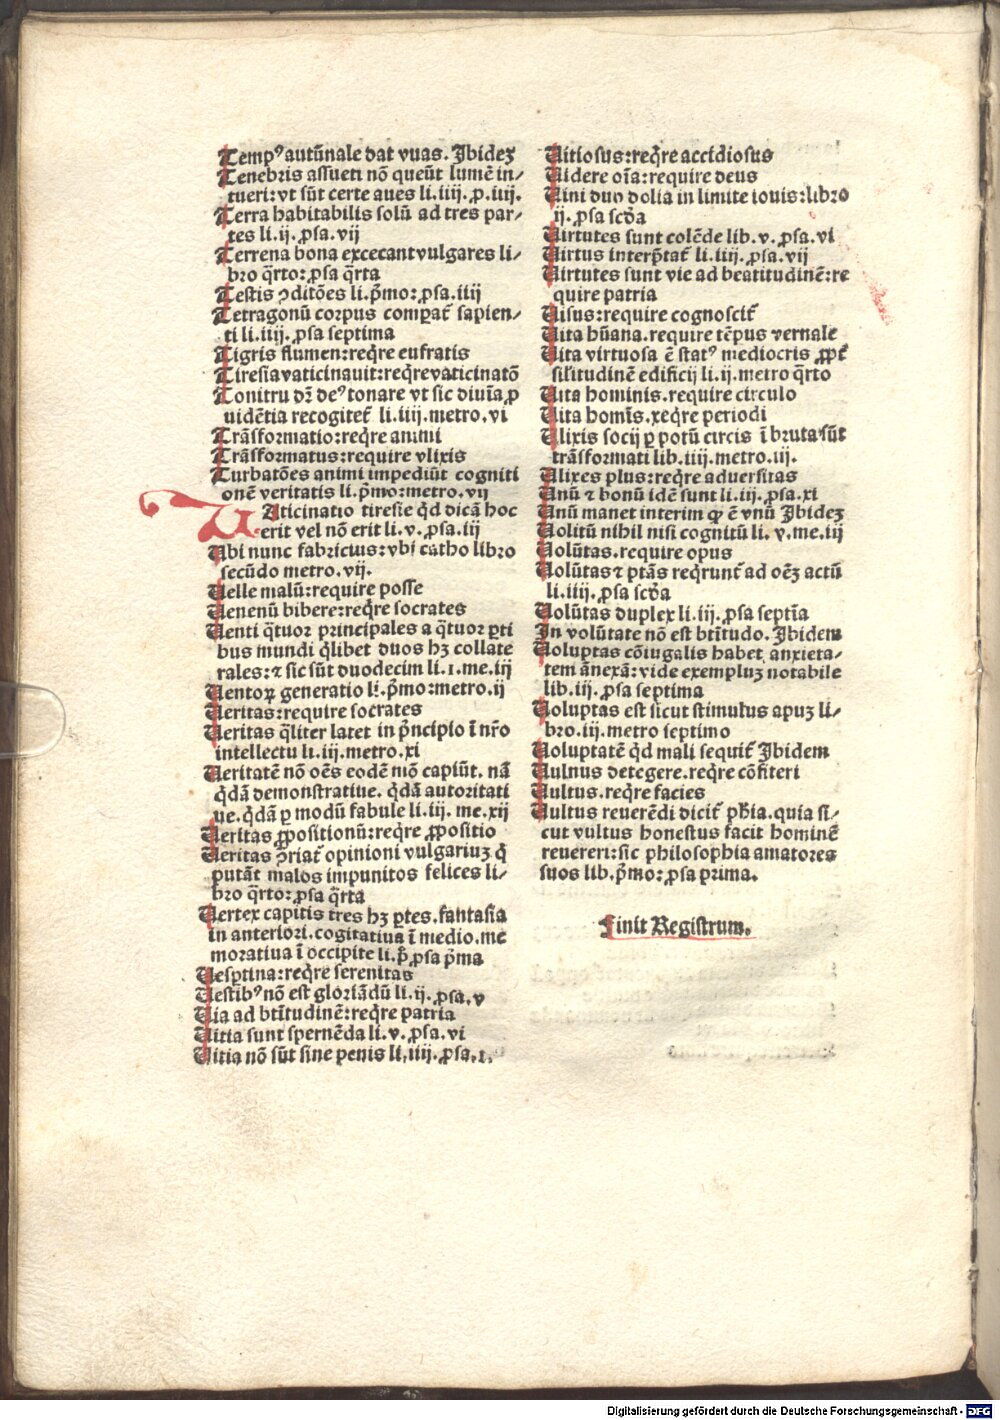 Tempꝰ autūnale dat vuas. Ibidez
Tenebris assueti nō queūt lumē in⸗
tueri: vt sūt certe aues li. iiij. p. iiij.
Terra habitabilis solū ad tres par⸗
tes li. ij. ꝓsa. vij
Terrena bona excecant vulgares li⸗
bro q̄rto: ꝓsa q̄rta
Testis ꝯditōes li. p̄mo: ꝓsa. iiij
Tetragonū corpus comparat̄ sapien⸗
ti li. iiij. ꝓsa septima
Tigris flumen: reqͥre eufratis
Tiresia vaticinauit: reqͥre vaticinatō
Tonitru dr̄ deꝰ tonare vt sic diuīa ꝓ
uidētia recogitet̄ li. iiij. metro. vi
Trāsformatio: reqͥre animi
Trāsformatus: require vlixis
Turbatōes animi impediūt cogniti
onē veritatis li. p̄mo: metro. vij
Vaticinatio tiresie q̄d dicā hoc
erit vel nō erit li. v. ꝓsa. iij
Vbi nunc fabricius: vbi catho libro
secūdo metro. vij.
Velle malū: require posse
Venenū bibere: reqͥre socrates
Venti q̄tuor principales a q̄tuor ꝑti
bus mundi q̄libet duos hꝫ collate
rales: ⁊ sic sūt duodecim li. 1. me. iij
Ventoꝝ generatio li. p̄mo: metro. ij
Veritas: require socrates
Veritas q̄liter latet in p̄ncipio ī nr̄o
intellectu li. iij. metro. xi
Veritatē nō oēs eodē mō capiūt. nā
q̄dā demonstratiue. q̄dā autoritati
ue. q̄dā ꝑ modū fabule li. iij. me. xij
Veritas ꝓpositionū: reqͥre ꝓpositio
Veritas ꝯriat̄ opinioni vulgariuꝫ q̄
putāt malos impunitos felices li⸗
bro q̄rto: ꝓsa q̄rta
Vertex capitis tres hꝫ ꝑtes. fantasia
in anteriori. cogitatiua ī medio. me
moratiua ī occipite li. p̄. ꝓsa p̄ma
Vesꝑtina: reqͥre serenitas
Vestibꝰ nō est gloriādū li. ij. ꝓsa. v
Via ad btītudinē: reqͥre patria
Vitia sunt spernēda li. v. ꝓsa. vi
Vitia nō sūt sine penis li. iiij. ꝓsa. 1.
Vitiosus: reqͥre accidiosus
Videre oīa: require deus
Vini duo dolia in limite iouis: libro
ij. ꝓsa scd̄a
Virtutes sunt colēde lib. v. ꝓsa. vi
Virtus interp̄tat̄ li. iiij. ꝓsa. vij
Virtutes sunt vie ad beatitudinē: re
quire patria
Visus: require cognoscit̄
Vita hūana. require tēpus vernale
Vita virtuosa ē statꝰ mediocris ꝓpt̄
sil̄itudinē edificij li. ij. metro q̄rto
Vita hominis. require circulo
Vita homīs. reqͥre periodi
Vlixis socij ꝑ potū circis ī bruta sūt
trāsformati lib. iiij. metro. iij.
Vlixes plus: reqͥre aduersitas
Vnū ⁊ bonū idē sunt li. iij. ꝓsa. xi
Vnū manet interim ꝙ ē vnū Ibidez
Volitū nihil nisi cognitū li. v. me. iij
Volūtas. require opus
Volūtas ⁊ ptās reqͥrunt̄ ad oēꝫ actū
li. iiij. ꝓsa scd̄a
Volūtas duplex li. iij. ꝓsa septīa
In volūtate nō est btītudo. Ibidem
Voluptas cōiugalis habet anxieta⸗
tem ānexā: vide exempluꝫ notabile
lib. iij. ꝓsa septima
Voluptas est sicut stimulus apuꝫ li⸗
bro. iij. metro septimo
Voluptatē q̄d mali sequit̄ Ibidem
Vulnus detegere. reqͥre cōfiteri
Vultus. reqͥre facies
Vultus reuerēdi dicit̄ ph̄ia. quia si⸗
cut vultus honestus facit hominē
reuereri: sic philosophia amatores
suos lib. p̄mo: ꝓsa prima.
Finit Registrum.
Digitalisierung gefördert durch die Deutsche Forschungsgemeinschaft - DFG